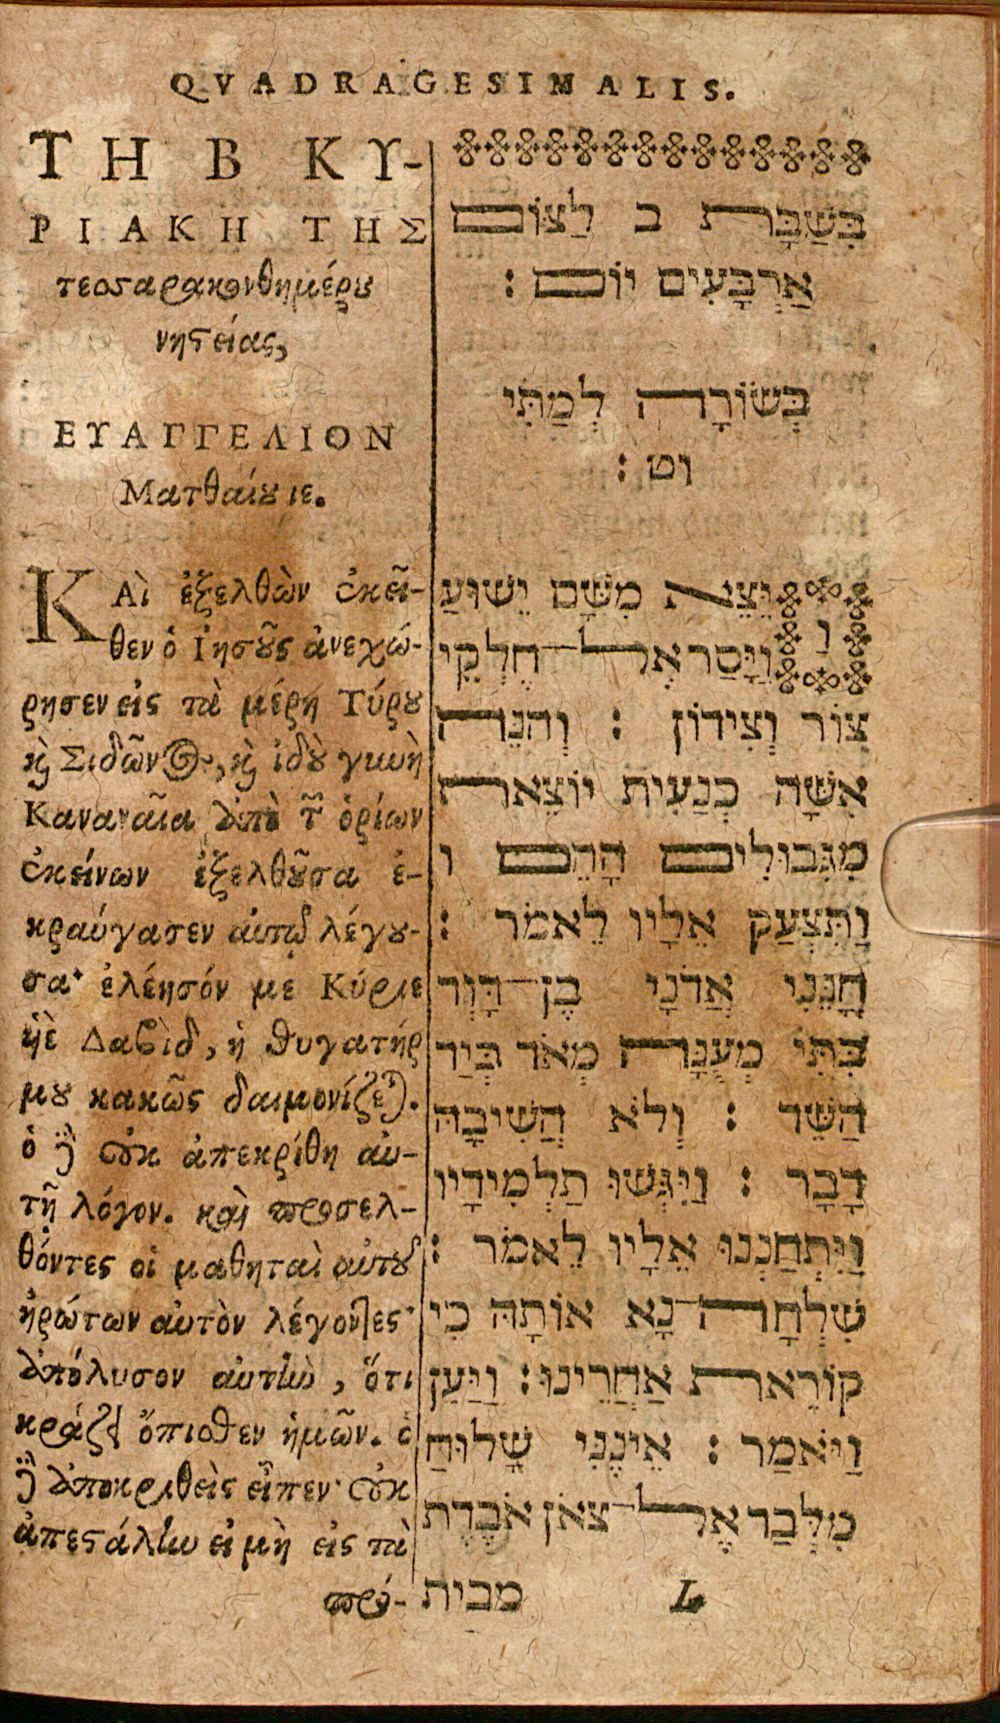 QVADRAGESIMALIS.
ΤΗ Β ΚΥ-
ΡΙΑΚΗ ΤΗΣ
τεσσαρακονθημέρου
νηστείας,
ΕΥΑΓΓΕΛΙΟΝ
Ματθαίου ιε.
ΚΑὶ ἐξελθὼν ἐκεῖ-
θεν ὁ Ἰησοῦς ἀνεχώ-
ρησεν εἰς τὰ μέρη Τύρου
καὶ Σιδῶνος, καὶ ἰδοὺ γυνὴ
Καναναῖα ἀπὸ τῶν ὁρίων
ἐκείνων ἐξελθοῦσα ἐ-
κραύγασεν αὐτῷ λέγου-
σα· ἐλέησόν με Κύριε
ὑὲ Δαβὶδ, ἡ θυγατήρ
μου κακῶς δαιμονίζεται.
ὁ δὲ οὐκ ἀπεκρίθη αὐ-
τῇ λόγον. καὶ προσελ-
θόντες οἱ μαθηταὶ αὐτοῦ
ἠρώτων αὐτὸν λέγοντες·
ἀπόλυσον αὐτὴν, ὅτι
κράζει ὄπισθεν ἡμῶν. ὁ
δὲ ἀποκριθεὶς εἶπεν· οὐκ
ἀπεστάλην εἰ μὴ εἰς τὰ
πρό-
בְּשַׁבָּת ב לַצּוֹם
אַרְבָּעִים יוֹם :
בְּשׂוֹרָה לְמַתִּי
וט :
וַיֵּצֵא מִשָּׁם יֵשׁוּעַ
וַיָּסַר אֶל־חֶלְקֵי
צוֹר וְצִידוֹן : וְהִנֵּה
אִשָּׁה כְּנַעִית יוֹצֵאת
מִגְּבוּלִים הָהֵם ו
וַתִּצְעַק אֵלָיו לֵאמֹר :
חָנֵּנִי אֲדֹנָי בֶן־דָּוִד
בִּתִּי מְעֻנָּה מְאֹד בְּיַד
הַשֵּׁד : וְלֹא הֲשִׁיבָהּ
דָבָר : וַיִּגְּשׁוּ תַלְמִידָיו
וַיִּתְחַנְּנוּ אֵלָיו לֵאמֹר :
שִׁלְחָה־נָא אוֹתָהּ כִי
קוֹרֵאת אַחֲרֵינוּ : וַיַּעַן
וַיֹּאמַר : אֵינֶנִּי שָׁלוּחַ
מִלְּבַד אֶל־צֹאן אֹבֶדֶת
מבית
L